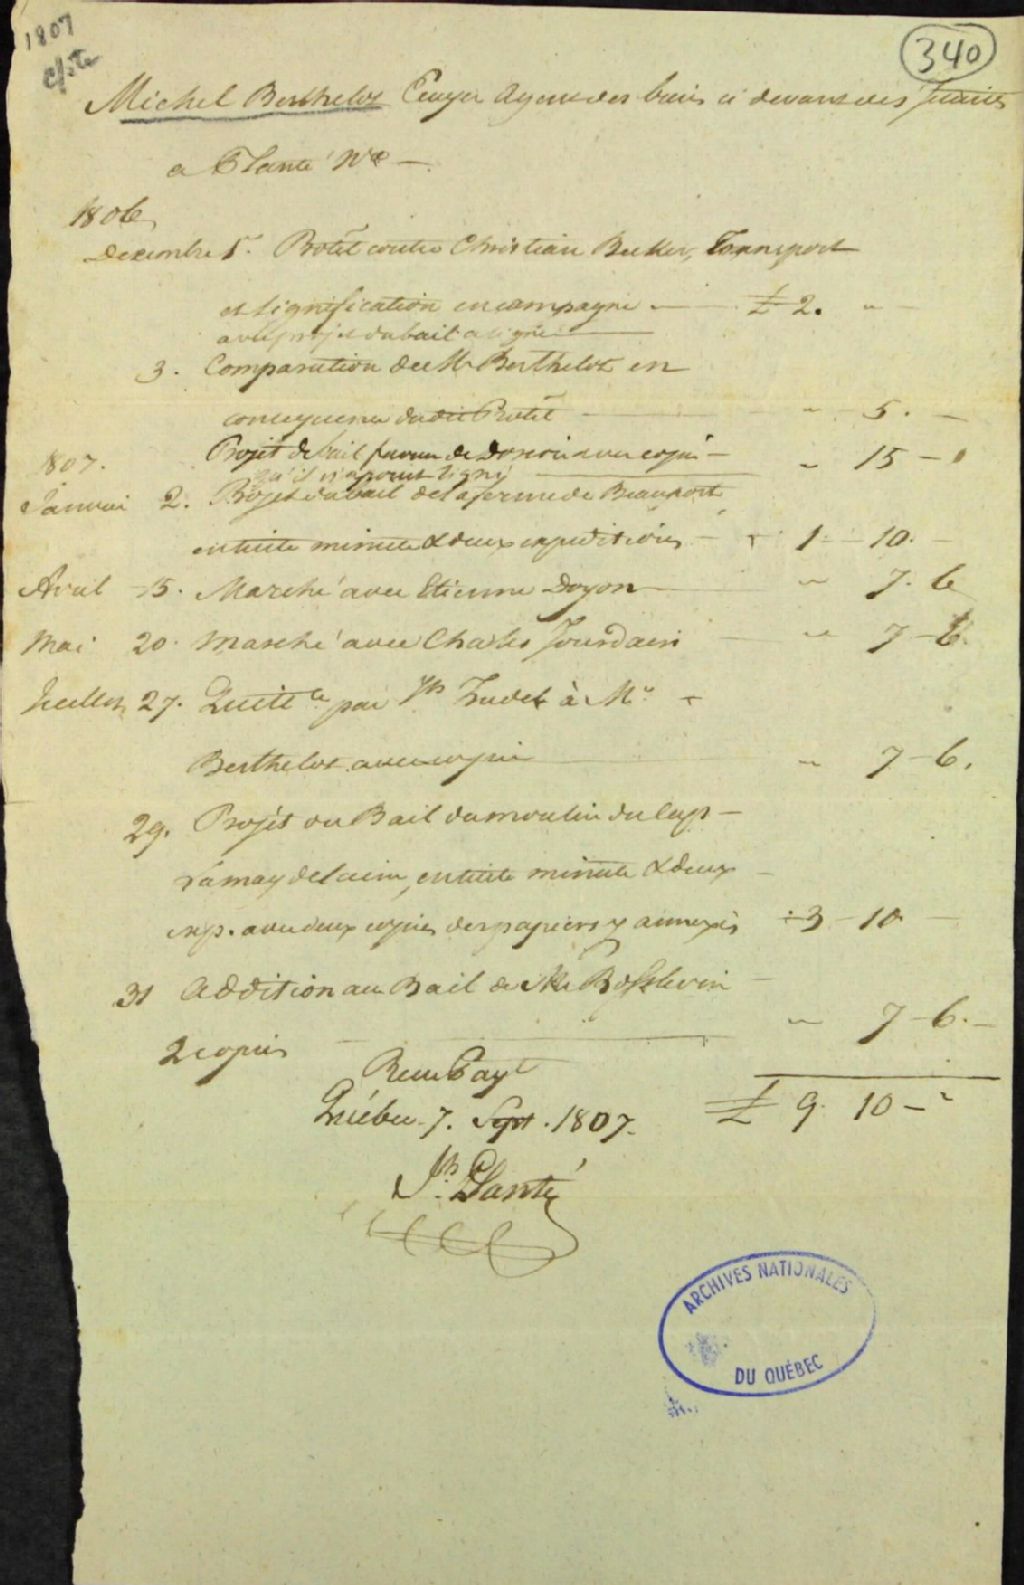 1807
340
Michel Berthelot Ecuyer Agent des biens ci devant des Jesuites
a Planté Nre
1806
Decembre 1. Protêt contre Christian Becker, Transport
et signification en campagne £ 2. "
avec projet du bail a signé
3. Comparution de Mr Berthelot en
consequence dudit Protêt " 5.
Projet de bail faveur de avec copie " 15
1807. qu'il n'a point signé
Janvier 2. Projet du bail de la ferme de Beauport
en tiette minute & deux expeditions 1 10.
Avril 15. Marché avec Etienne Doyon " 7. 6
Mai 20. Marché avec Charles Jourdain " 7-6.
Juillet 27. Quitte par Jh à Mr
Berthelot avec copie " 7-6.
29. Projèt ou Bail du moulin du Cap
minute & deux
exp. avec deux copies des papiers y annexés 3-10
31 Addition au Bail de Mr
2 copies " 7-6.
Recu Payt £ 9. 10 -"
Québec 7. Sept. 1807.
Jh. Planté
ARCHIVES NATIONALES
DU QUÉBEC